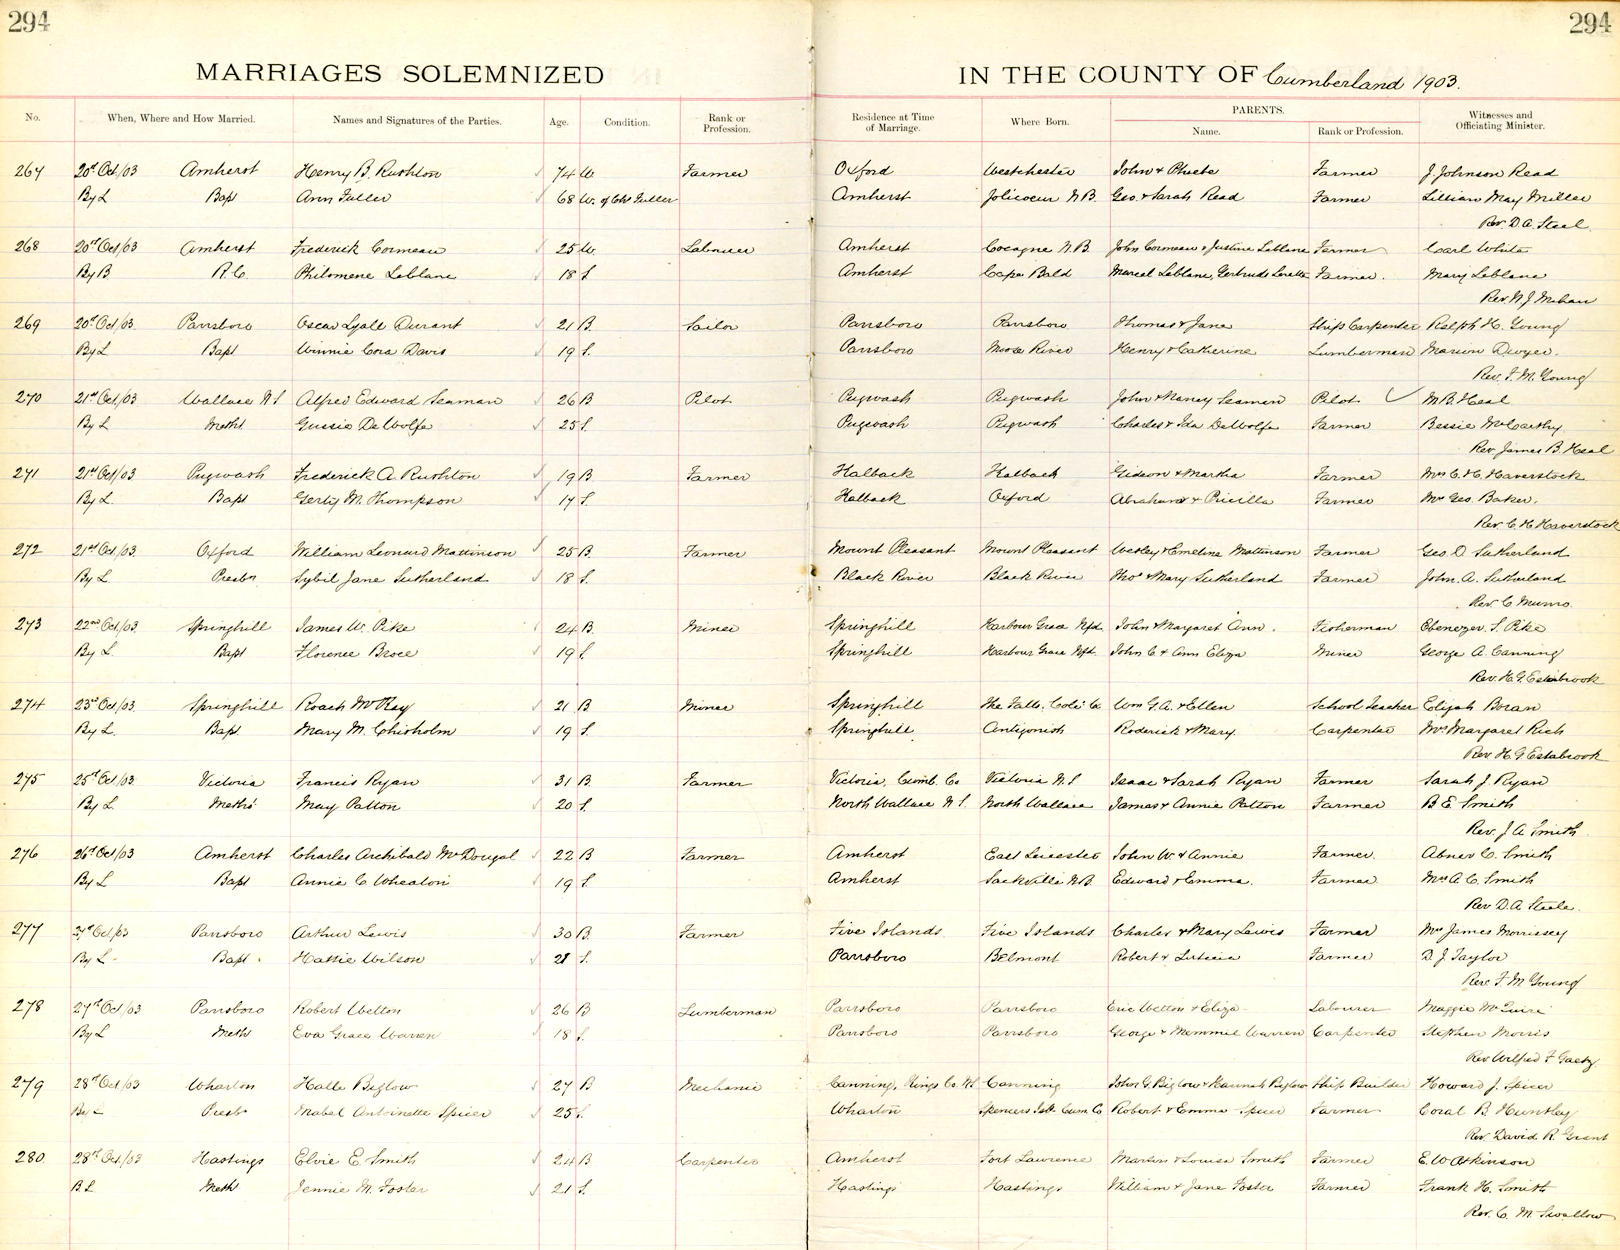 294
294
MARRIAGES SOLEMNIZED
IN THE COUNTY OF Cumberland 1903.
No. When, Where and How Married. Names and Signatures of the Parties. Age. Condition. Rank or Profession. Residence at Time of Marriage. Where Born. PARENTS. Name. Rank or Profession. Witnesses and Officiating Minister.
267 20th Oct/03 Amherst Henry B. Rushton 74 W. Farmer Oxford Westchester John & Phoebe Farmer J. Johnson Read
By L Bap Ann Fuller 68 W. of Chs Fuller Amherst Jolicoeur N.B. Geo. & Sarah Read Farmer Lillian May Miller
Rev. D. A. Steel
268 20th Oct/03 Amherst Frederick Cormeau 25 W. Labourer Amherst Cocagne N.B. John Cormeau & Justine Leblanc Farmer Carl White
By B R.C. Philomene Leblanc 18 S. Amherst Cape Bald Marcel Leblanc, Gertrude Farmer. Mary Leblanc
Rev. W. J. Mihan
269 20th Oct/03 Parrsboro Oscar Lyall Durant 21 B. Sailor Parrsboro Parrsboro Thomas & Jane Ship Carpenter Ralph H. Young
By L Bapt Winnie Cora Davis 19 S. Parrsboro Moose River Henry & Catherine Lumberman Marion Dwyer.
Rev. F. M. Young
270 21st Oct/03 Wallace N.S Alfred Edward Seaman 26 B Pilot Pugwash Pugwash John & Nancy Seaman Pilot M B. Heal
By L Meth. Gussie DeWolfe 25 S. Pugwash Pugwash Charles & Ida DeWolfe Farmer Bessie McCarthy
Rev. James B. Heal
271 21st Oct/03 Pugwash Frederick A. Rushton 19 B Farmer Halback Halback Gideon & Martha Farmer Mrs C. H. Haverstock
By L Bapt Gerty M. Thompson 17 S. Halback Oxford Abraham & Pricilla Farmer Mrs Geo. Baker.
Rev. C. H. Haverstock
272 21st Oct/03 Oxford William Leonard Mattinson 25 B. Farmer Mount Pleasant Mount Pleasant Wesley & Emeline Mattinson Farmer Geo. D. Sutherland
By L Presbn Sybil Jane Sutherland 18 S. Black River Black River Thos & Mary Sutherland Farmer John. A. Sutherland
Rev. C. Munro.
273 22nd Oct/03 Springhill James W. Pike 24 B. Miner Springhill Harbour Grace Nfd. John & Margaret Ann. Fisherman Ebenezer. S. Pike
By L. Bapt Florence Broce 19 S. Springhill Harbour Grace Nfd. John C. & Ann Eliza Miner George A. Canning
Rev. H. G. Estabrook
274 23rd Oct/03 Springhill Roach McKay 21 B Miner Springhill The Falls, Col. Co Wm G. A. & Ellen School Teacher Elijah Boran
By L. Bapt Mary M. Chisholm 19 S. Springhill Antigonish Roderick & Mary. Carpenter Mrs Margaret Rich
Rev H. G Estabrook
275 25th Oct/03 Victoria Francis Ryan 31 B. Farmer Victoria, Cumb. Co Victoria N.S Isaac & Sarah Ryan Farmer Sarah J. Ryan
By L Meth. May Patton 20 S. North Wallace N.S. North Wallace James & Annie Patton Farmer B. E. Smith
Rev. J. A Smith
276 26th Oct/03 Amherst Charles Archibald McDougal 22 B Farmer Amherst East Leicester John W. & Annie Farmer. Abner C. Smith
By L Bapt Annie C. Wheaton 19 S. Amherst Sackville N.B. Edward & Emma. Farmer Mrs A. C. Smith
Rev D. A. Steele.
277 27th Oct/03 Parrsboro Arthur Lewis 30 B. Farmer Five Islands Five Islands Charles & Mary Lewis Farmer Mrs James Morrissey
By L Bapt. Hattie Wilson 21 S. Parrsboro Belmont Robert & Farmer D. J Taylor
Rev. F. M Young
278 27th Oct/03 Parrsboro Robert Welton 26 B Lumberman Parrsboro Parrsboro Eric Welton & Eliza Labourer Maggie McGuire
By L Meth Eva Grace Warren 18 S. Parrsboro Parrsboro George & Memmie Warren Carpenter Stephen Morris
Rev Wilfred F Gaetz
279 28th Oct/03 Wharton Halle Biglow 27 B Mechanic Canning, Kings Co. N.S. Canning John G. Biglow & Hannah Biglow Ship Builder Howard J. Spicer
By L Presb Mabel Antoinette Spicer 25 S. Wharton Spencers Isd. Cum. Co. Robert & Emma Spicer Farmer Coral B. Huntley
Rev. David R. Grant
280 28th Oct/03 Hastings Elvie E. Smith 24 B Carpenter Amherst Fort Lawrence Martin & Louisa Smith Farmer E. W. Atkinson
B. L Meth Jennie M. Foster 21 S. Hastings Hastings William & Jane Foster Farmer Frank H. Smith
Rev. C. M. Swallow